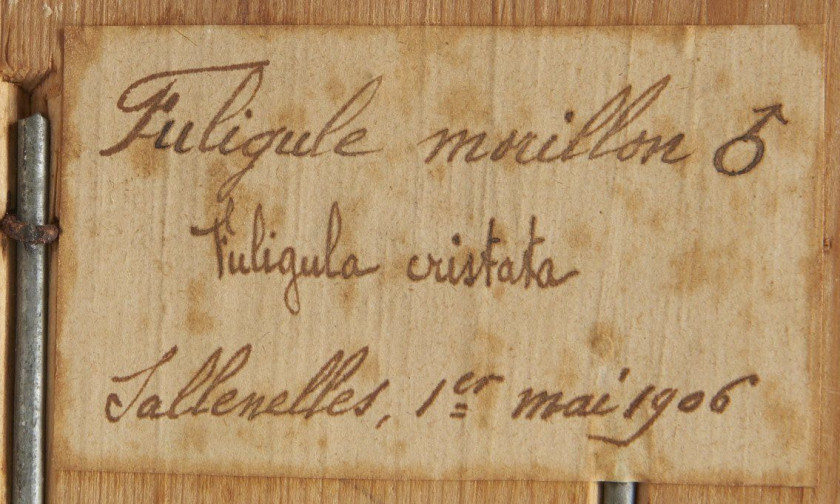 Fuligule morillon ♂
Fuligula cristata
Sallenelles, 1er mai 1906